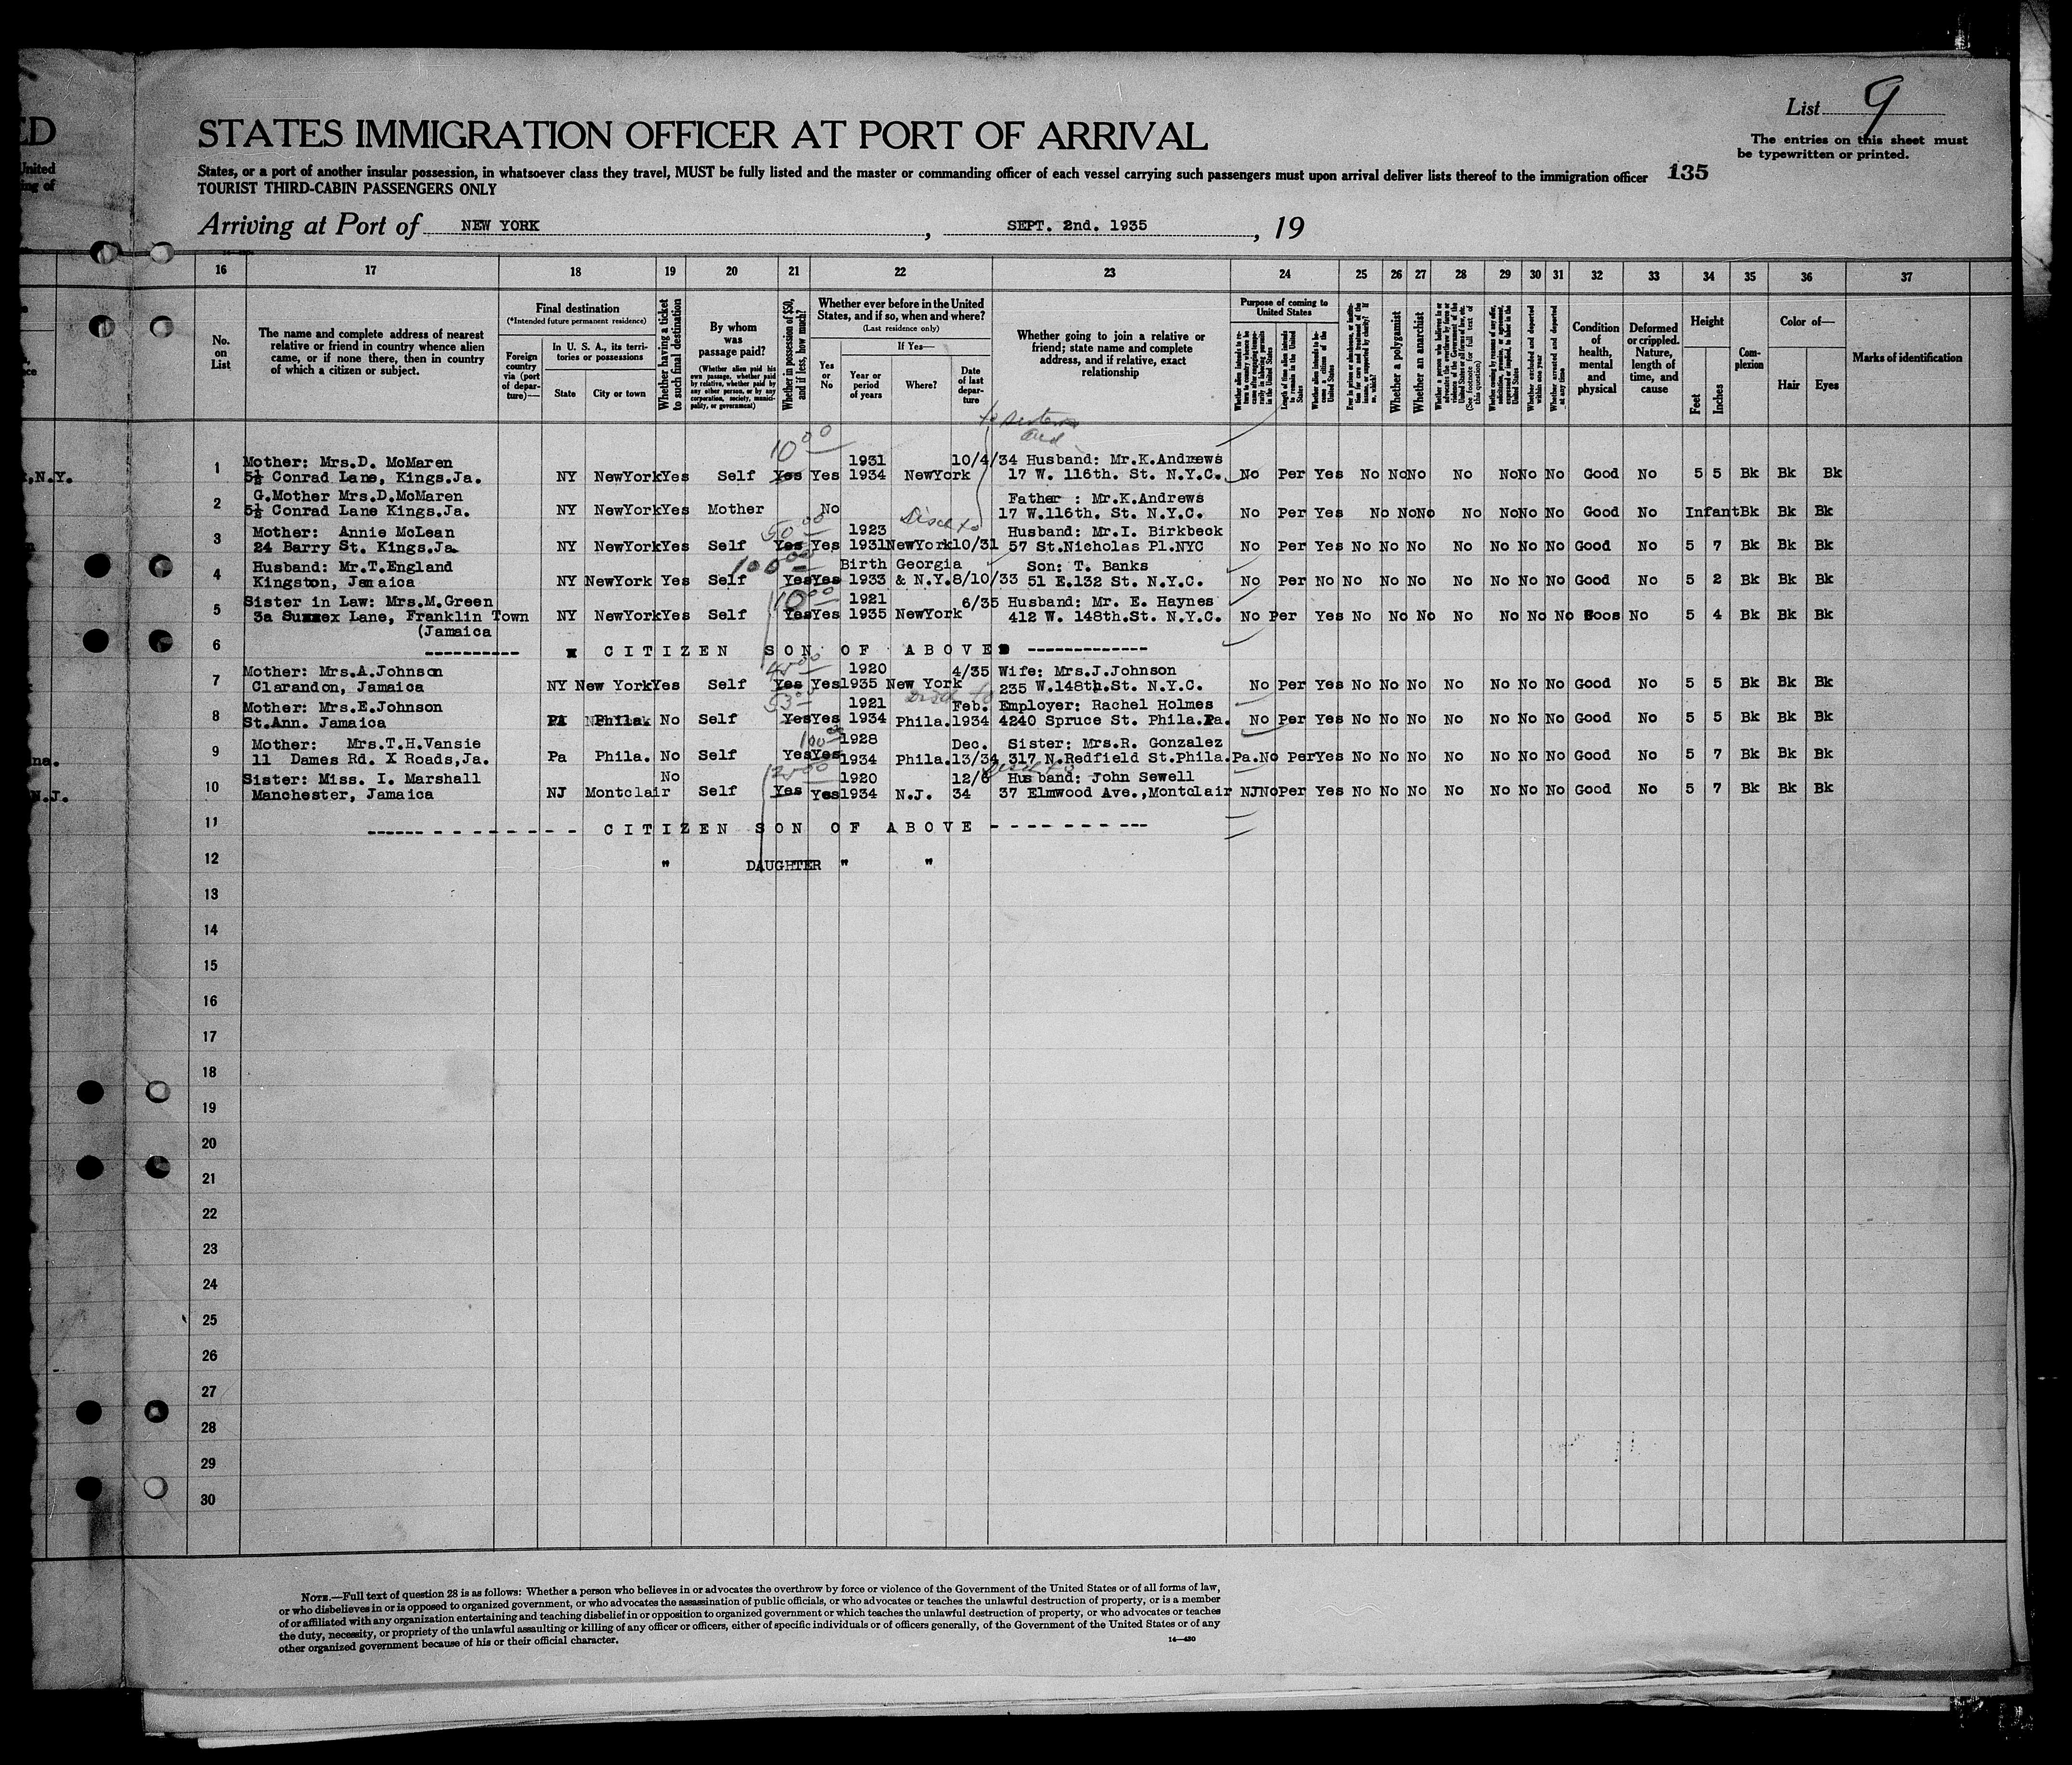 List 9
The entries on this sheet must
be typewritten or printed.
ED
STATES IMMIGRATION OFFICER AT PORT OF ARRIVAL
States, or a port of another insular possession, in whatsoever class they travel, MUST be fully listed and the master or commanding officer of each vessel carrying such passengers must upon arrival deliver lists thereof to the immigration officer 135
TOURIST THIRD-CABIN PASSENGERS ONLY
Arriving at Port of NEW YORK, SEPT. 2nd. 1935, 19
16 17 18 19 20 21 22 23 24 25 26 27 28 29 30 31 32 33 34 35 36 37
No. on List
The name and complete address of nearest
relative or friend in country whence alien
came, or if none there, then in country
of which a citizen or subject.
Final destination
(*Intended future permanent residence)
Foreign country via (port of departure)—
In U. S. A., its territories or possessions
State
City or town
Whether having a ticket to such final destination
By whom was passage paid?
(Whether alien paid his own passage, whether paid by relative, whether paid by any other person, or by any corporation, society, municipality, or government)
Whether in possession of $50, and if less, how much?
Whether ever before in the United States, and if so, when and where?
(Last residence only)
Yes or No
If Yes—
Year or period of years
Where?
Date of last departure
Whether going to join a relative or
friend; state name and complete
address, and if relative, exact
relationship
Purpose of coming to United States
Length of time alien intends to remain in the United States
Whether a polygamist
Whether an anarchist
Whether arrested and deported at any time
Condition of health, mental and physical
Deformed or crippled. Nature, length of time, and cause
Height
Feet
Inches
Complexion
Color of—
Hair
Eyes
Marks of identification
to sister and
10 00
1 Mother: Mrs.D. McMaren 1931 10/4/34 Husband: Mr.K.Andrews
5½ Conrad Lane, Kings.Ja. NY NewYork Yes Self Yes Yes 1934 NewYork 17 W. 116th. St. N.Y.C. No Per Yes No No No No No No No Good No 5 5 Bk Bk Bk
2 G.Mother Mrs.D.McMaren Father : Mr.K.Andrews
5½ Conrad Lane Kings.Ja. NY NewYork Yes Mother No 17 W.116th. St. N.Y.C. No Per Yes No No No No No No No Good No Infant Bk Bk Bk
50 00 Disch to
3 Mother: Annie McLean 1923 Husband: Mr.I. Birkbeck
24 Barry St. Kings.Ja NY NewYork Yes Self Yes Yes 1931 NewYork 10/31 57 St.Nicholas Pl.NYC No Per Yes No No No No No No No Good No 5 7 Bk Bk Bk
100 00
4 Husband: Mr.T.England Birth Georgia Son: T. Banks
Kingston, Jamaica NY NewYork Yes Self Yes Yes 1933 & N.Y. 8/10/33 51 E.132 St. N.Y.C. No Per No No No No No No No No Good No 5 2 Bk Bk Bk
10 00
5 Sister in Law: Mrs.M.Green 1921 6/35 Husband: Mr. E. Haynes
3a Sussex Lane, Franklin Town NY NewYork Yes Self Yes Yes 1935 NewYork 412 W. 148th.St. N.Y.C. No Per Yes No No No No No No No No 5 4 Bk Bk Bk
(Jamaica
6 ---------- CITIZEN SON OF ABOVE -------------
7 Mother: Mrs.A.Johnson 1920 4/35 Wife: Mrs.J.Johnson
Clarandon, Jamaica NY New York Yes Self Yes Yes 1935 New York 235 W.148th.St. N.Y.C. No Per Yes No No No No No No No Good No 5 5 Bk Bk Bk
8 Mother: Mrs.E.Johnson 1921 Feb. Employer: Rachel Holmes
St.Ann. Jamaica PA Phila. No Self Yes Yes 1934 Phila. 1934 4240 Spruce St. Phila.Pa. No Per Yes No No No No No No No Good No 5 5 Bk Bk Bk
100 00
9 Mother: Mrs.T.H.Vansie 1928 Dec. Sister: Mrs.R. Gonzalez
11 Dames Rd. X Roads,Ja. Pa Phila. No Self Yes Yes 1934 Phila. 13/34 317 N.Redfield St.Phila.Pa. No Per Yes No No No No No No No Good No 5 7 Bk Bk Bk
10 Sister: Miss. I. Marshall No 1920 12/6 Husband: John Sewell
Manchester, Jamaica NJ Montclair Self Yes Yes 1934 N.J. 34 37 Elmwood Ave.,Montclair NJ No Per Yes No No No No No No No Good No 5 7 Bk Bk Bk
11 ---------------- CITIZEN SON OF ABOVE ------------
12 " DAUGHTER " "
13
14
15
16
17
18
19
20
21
22
23
24
25
26
27
28
29
30
,N.Y.
na.
N.J.
NOTE.—Full text of question 28 is as follows: Whether a person who believes in or advocates the overthrow by force or violence of the Government of the United States or of all forms of law,
or who disbelieves in or is opposed to organized government, or who advocates the assassination of public officials, or who advocates or teaches the unlawful destruction of property, or is a member
of or affiliated with any organization entertaining and teaching disbelief in or opposition to organized government or which teaches the unlawful destruction of property, or who advocates or teaches
the duty, necessity, or propriety of the unlawful assaulting or killing of any officer or officers, either of specific individuals or of officers generally, of the Government of the United States or of any
other organized government because of his or their official character.
14—430